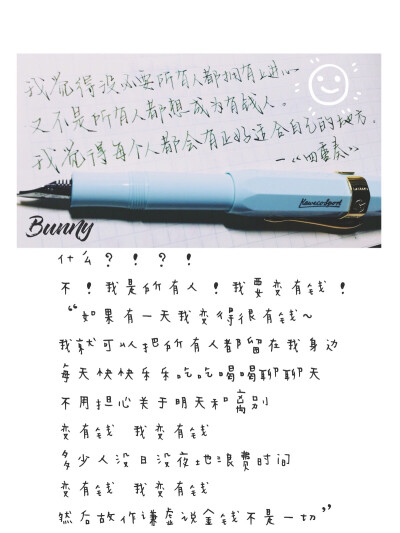 我觉得没必要所有人都拥有上进心
又不是所有人都想成为有钱人。
我觉得每个人都会有正好适合自己的地方.
—《四重奏》
Kaweco Sport
Bunny
什么？！？！
不！我是所有人！我要变有钱！
“如果有一天我变得很有钱~
我就可以把所有人都留在我身边
每天快快乐乐吃吃喝喝聊聊天
不用担心关于明天和离别
变有钱 我变有钱
多少人没日没夜地浪费时间
变有钱 我变有钱
然后故作谦虚说金钱不是一切”